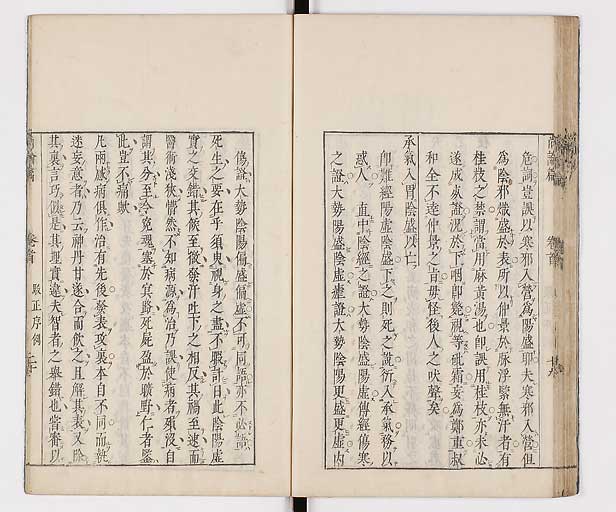 危詞豈誤以寒邪入營爲陽盛耶夫寒邪入營但
爲陰邪熾盛於表所以仲景於脉浮緊無汗者有
桂枝之禁謂當用麻黄湯也卽誤用桂枝亦未必
遂成危證況於下咽卽斃視等砒霜妄爲鄭重叔
和全不達仲景之旨毋怪後人之吠聲矣
承氣入胃陰盛以亡
卽雖經陽虛陰盛下之則死之說衍入承氣移以
惑人 直中陰經之證大勢陰盛陽虛傳經傷寒
之證大勢陽盛陰虛瘧證大勢陰陽更盛更虛内
傷證大勢陰陽偏盛偏虛不可同語亦不必語
死生之要在乎須臾視身之盡不暇計日此陰陽虛
實之交錯其候至微發汗吐下之相反其禍至速而
醫術淺狹懵然不知病源爲治乃誤使病者殞沒自
謂其分至令寃魂塞於冥路死屍盈於曠野仁者鑒
此豈不痛歟
凡兩感病俱作治有先後發表攻裏本自不同而執
迷妄意者乃云神丹甘遂合而飲之且解其表又除
其裏言巧似是其理實違夫智者之舉錯也常審以
尚論篇
卷首
尚論篇
卷首
駁正序例